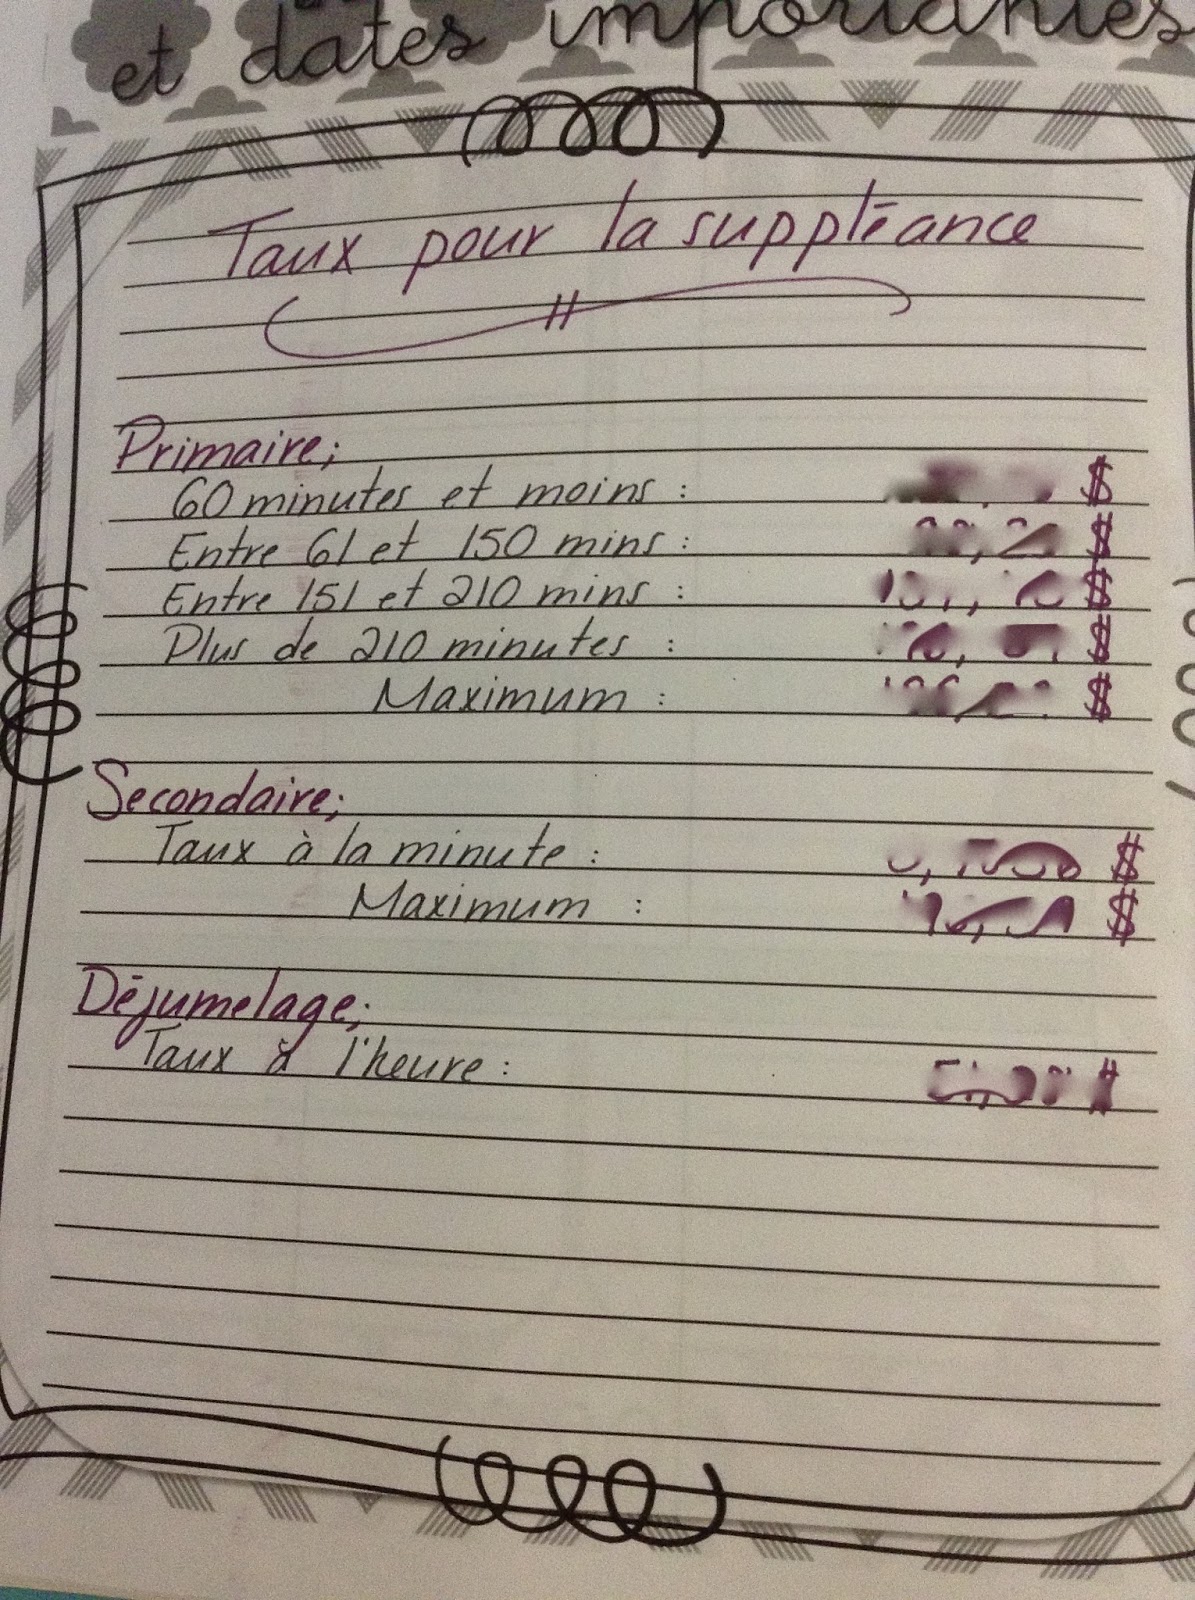 et dates importantes
Taux pour la suppléance
Primaire;
60 minutes et moins : $
Entre 61 et 150 mins : $
Entre 151 et 210 mins : $
Plus de 210 minutes : $
Maximum : $
Secondaire;
Taux à la minute : $
Maximum : $
Déjumelage;
Taux à l'heure :